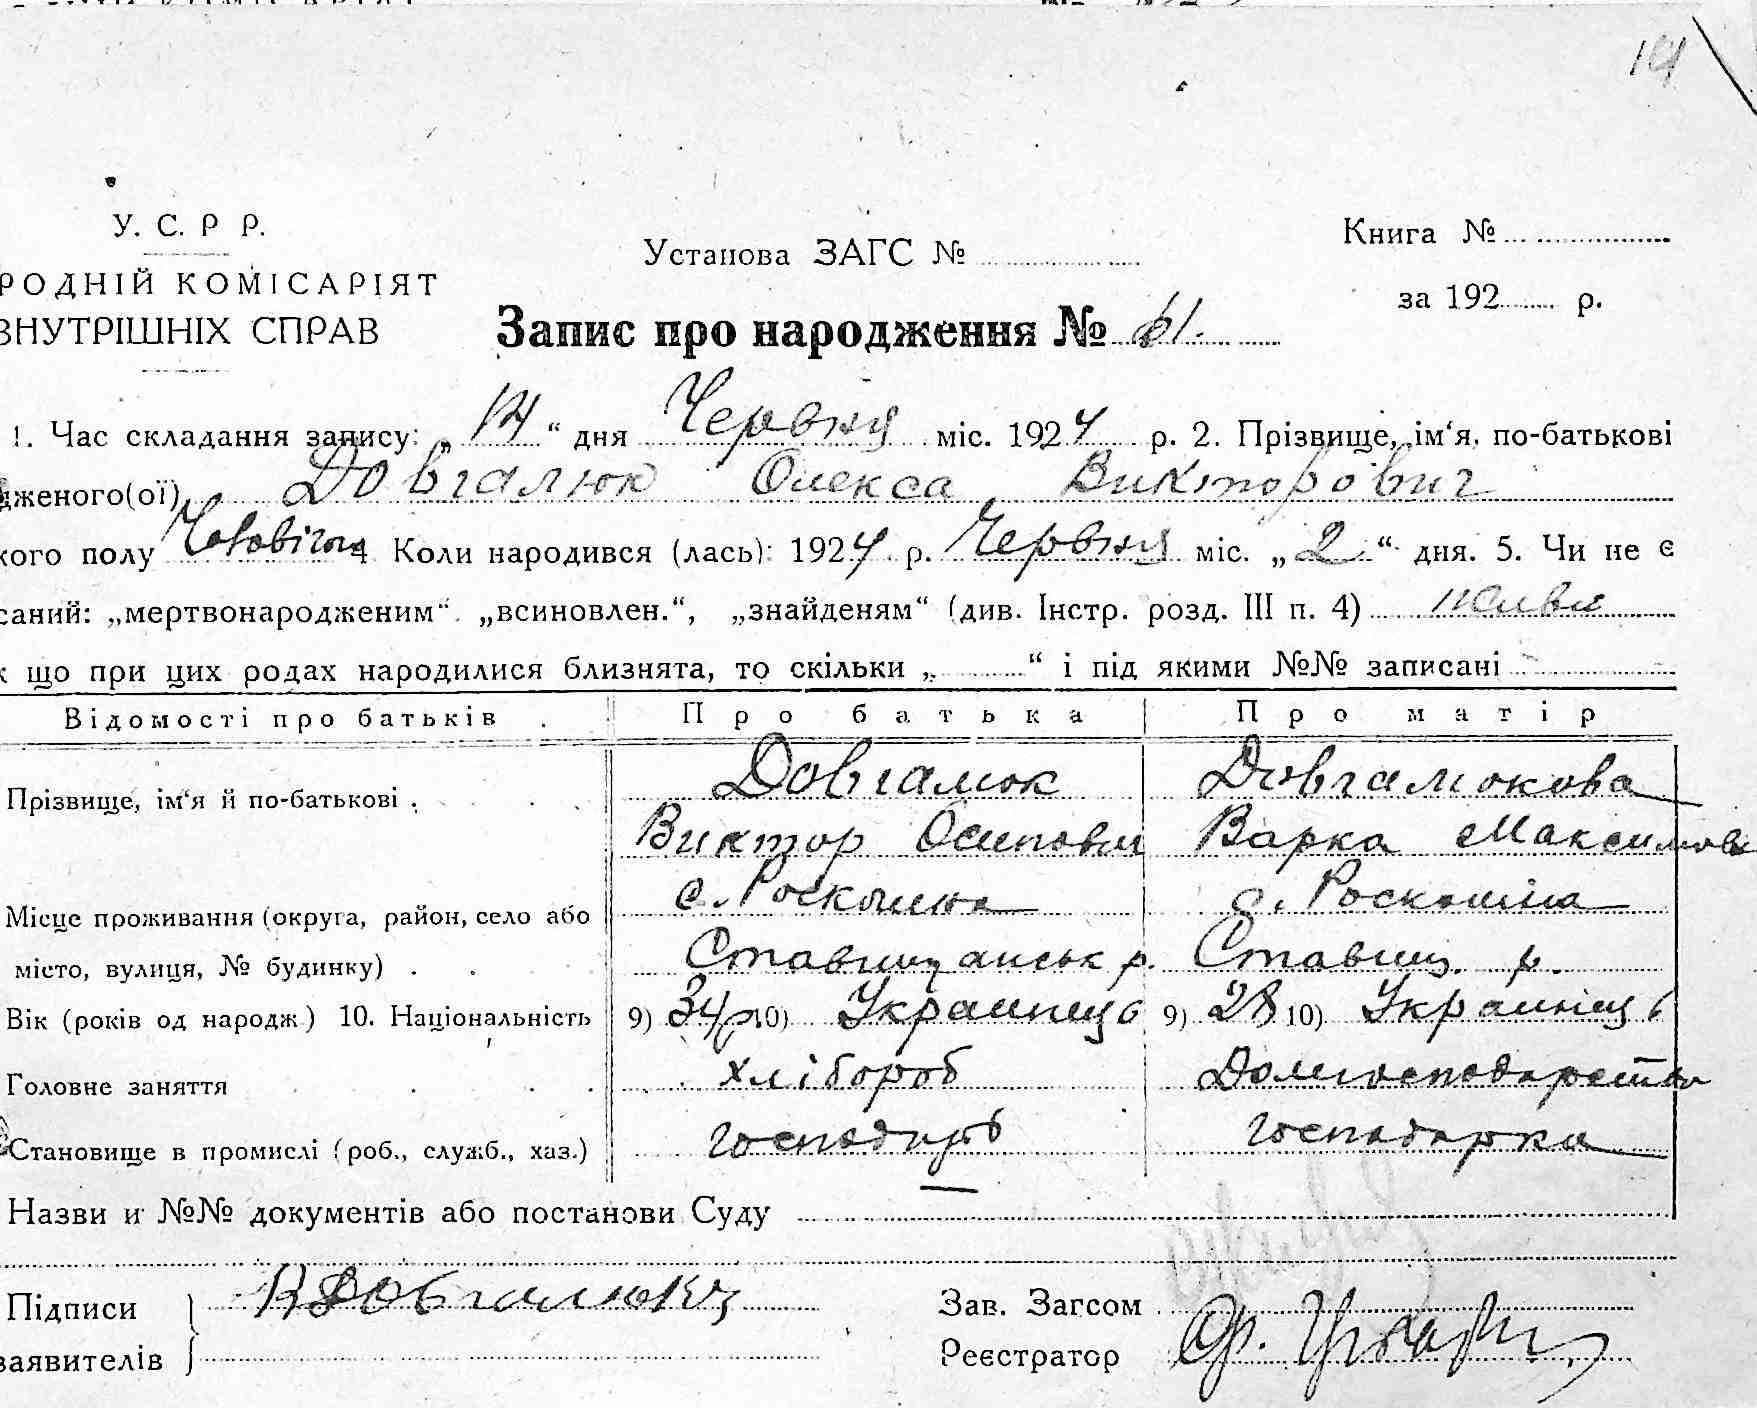 14
У. С. Р Р.
Установа ЗАГС №
Книга №
РОДНІЙ КОМІСАРІЯТ
за 192 р.
ВНУТРІШНІХ СПРАВ
Запис про народження № 61.
1. Час складання запису: „14“ дня Червня міс. 1924 р. 2. Прізвище, ім‘я, по-батькові
дженого(ої) Довгалюк Олекса Викторович
кого полу 4 Коли народився (лась): 1924 р. Червня міс. „2“ дня. 5. Чи не є
саний: „мертвонародженим“ „всиновлен.“, „знайденям“ (див. Інстр. розд. III п. 4)
що при цих родах народилися близнята, то скільки „ “ і під якими №№ записані
Відомості про батьків Про батька Про матір
Прізвище, ім‘я й по-батькові Довгалюк Довгалюкова
Виктор Осипович Варка Максимов
Місце проживання (округа, район, село або с. Роскошна с. Роскошна
місто, вулиця, № будинку) Ставищанськ р. Ставищ. р.
Вік (років од народж.) 10. Національність 9) 34 р 10) Украинець 9) 28 10) Украинець
Головне заняття хлібороб Домгосподарство
Становище в промислі (роб., служб., хаз.) господарь господарка
Назви и №№ документів або постанови Суду
Підписи В Довгалюк Зав. Загсом
заявителів Реєстратор